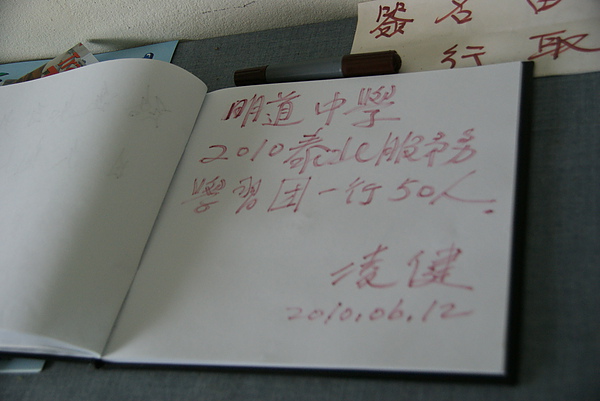 器 名
行 取
明道中學
2010泰北服務
學習团一行50人.
凌健
2010.06.12